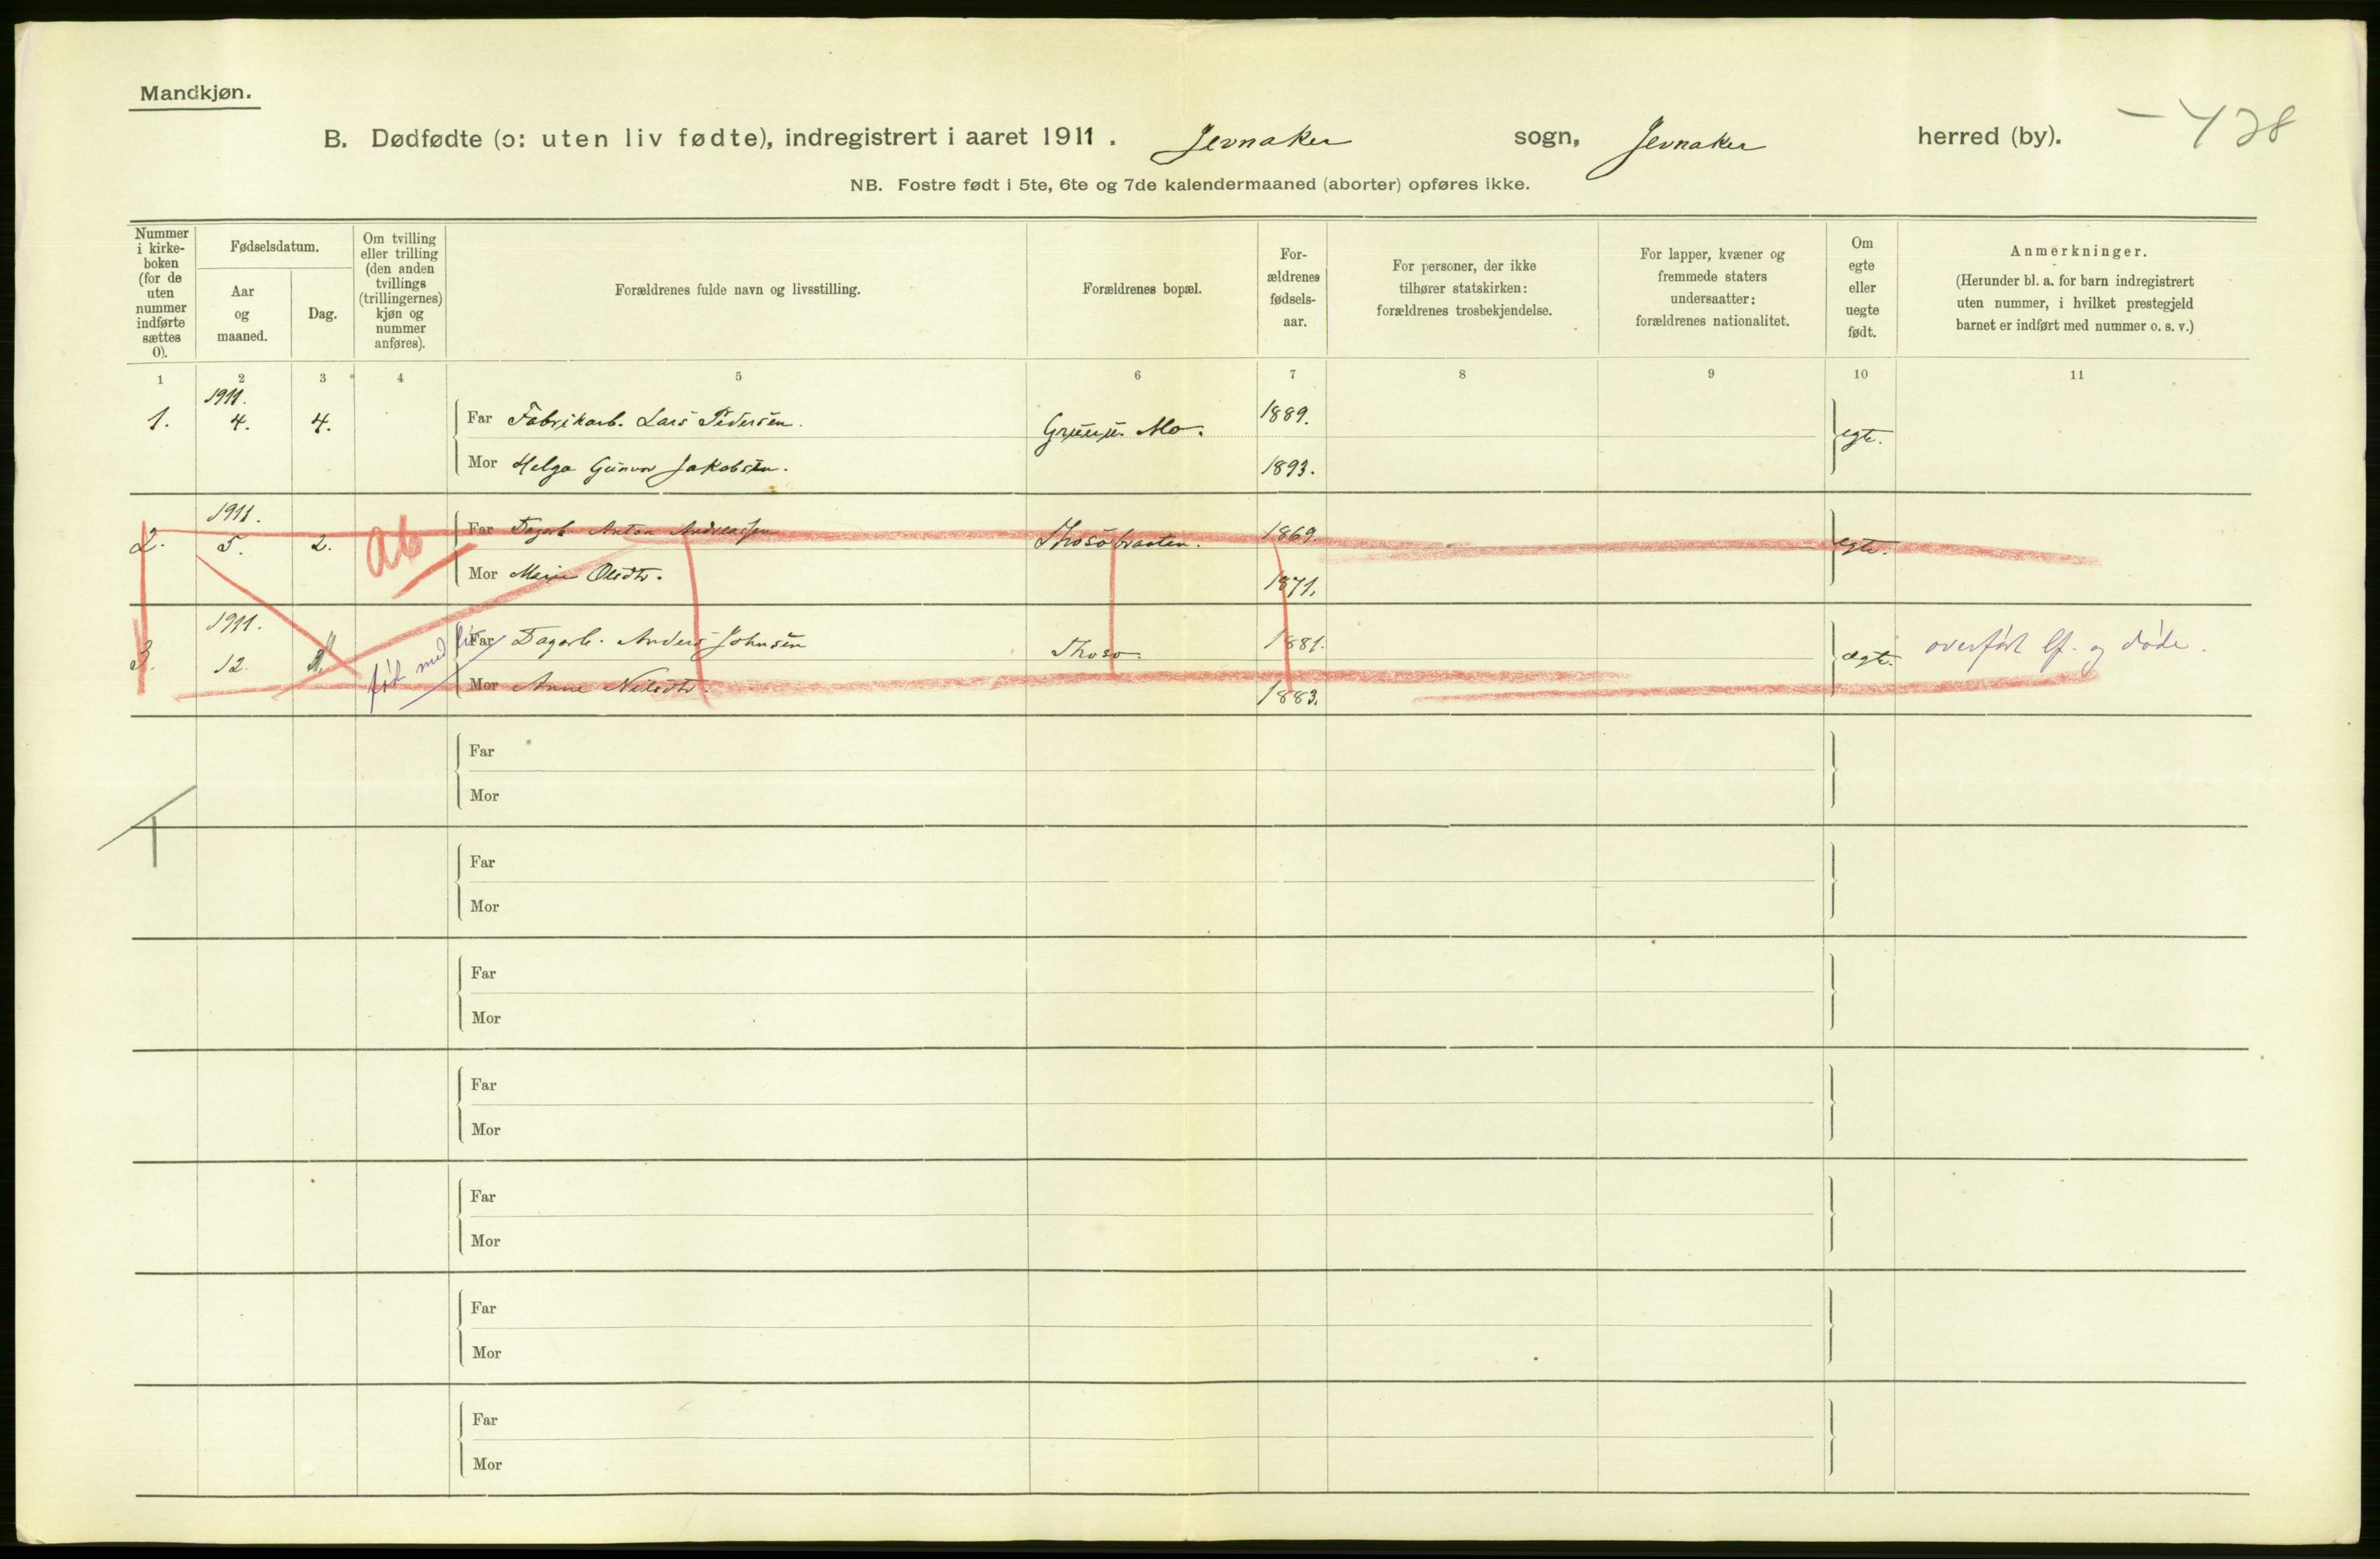 Mandkjøn.
B. Dødfødte (ɔ: uten liv fødte), indregistrert i aaret 1911. Jevnaker sogn, Jevnaker herred (by). – 428
NB. Fostre født i 5te, 6te og 7de kalendermaaned (aborter) opføres ikke.
Nummer i kirke-boken (for de uten nummer indførte sættes 0).
Fødselsdatum.
Aar og maaned.
Dag.
Om tvilling eller trilling (den anden tvillings (trillingernes) kjøn og nummer anføres).
Forældrenes fulde navn og livsstilling.
Forældrenes bopæl.
For-ældrenes fødsels-aar.
For personer, der ikke tilhører statskirken: forældrenes trosbekjendelse.
For lapper, kvæner og fremmede staters undersaatter: forældrenes nationalitet.
Om egte eller uegte født.
Anmerkninger.
(Herunder bl. a. for barn indregistrert uten nummer, i hvilket prestegjeld barnet er indført med nummer o. s. v.)
1 2 3 4 5 6 7 8 9 10 11
1911.
1. 4. 4. Far Fabrikarb. Lars Pedersen. Mo. 1889. egte.
Mor Helga Gunvor Jakobsen. 1893.
1911.
2. 5. 2. ab Far Dagarb Anton Andreassen Thosobraaten. 1869. egte.
Mor Marie Olsdtr. 1871.
1911.
3. 12. født med liv Far Dagarb. Anders Johnsen Thoso. 1881. egte. overført lf. og døde.
Mor Anne Nilsdtr. 1883.
Far
Mor
1
Far
Mor
Far
Mor
Far
Mor
Far
Mor
Far
Mor
Far
Mor